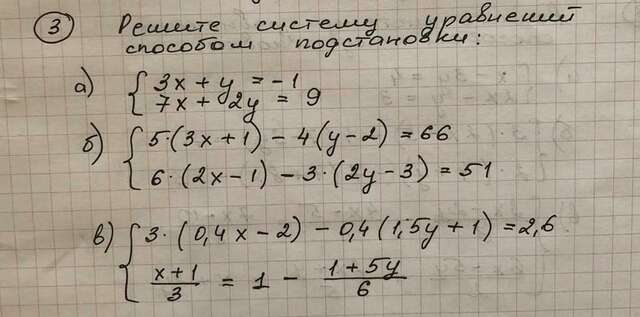 ③ Решите систему уравнений
способом подстановки:
а) { 3x + y = -1
7x + 2y = 9
б) { 5·(3x+1) - 4(y-2) = 66
6·(2x-1) - 3·(2y-3) = 51
в) { 3·(0,4x-2) - 0,4(1,5y+1) = 2,6
(x+1)/3 = 1 - (1+5y)/6